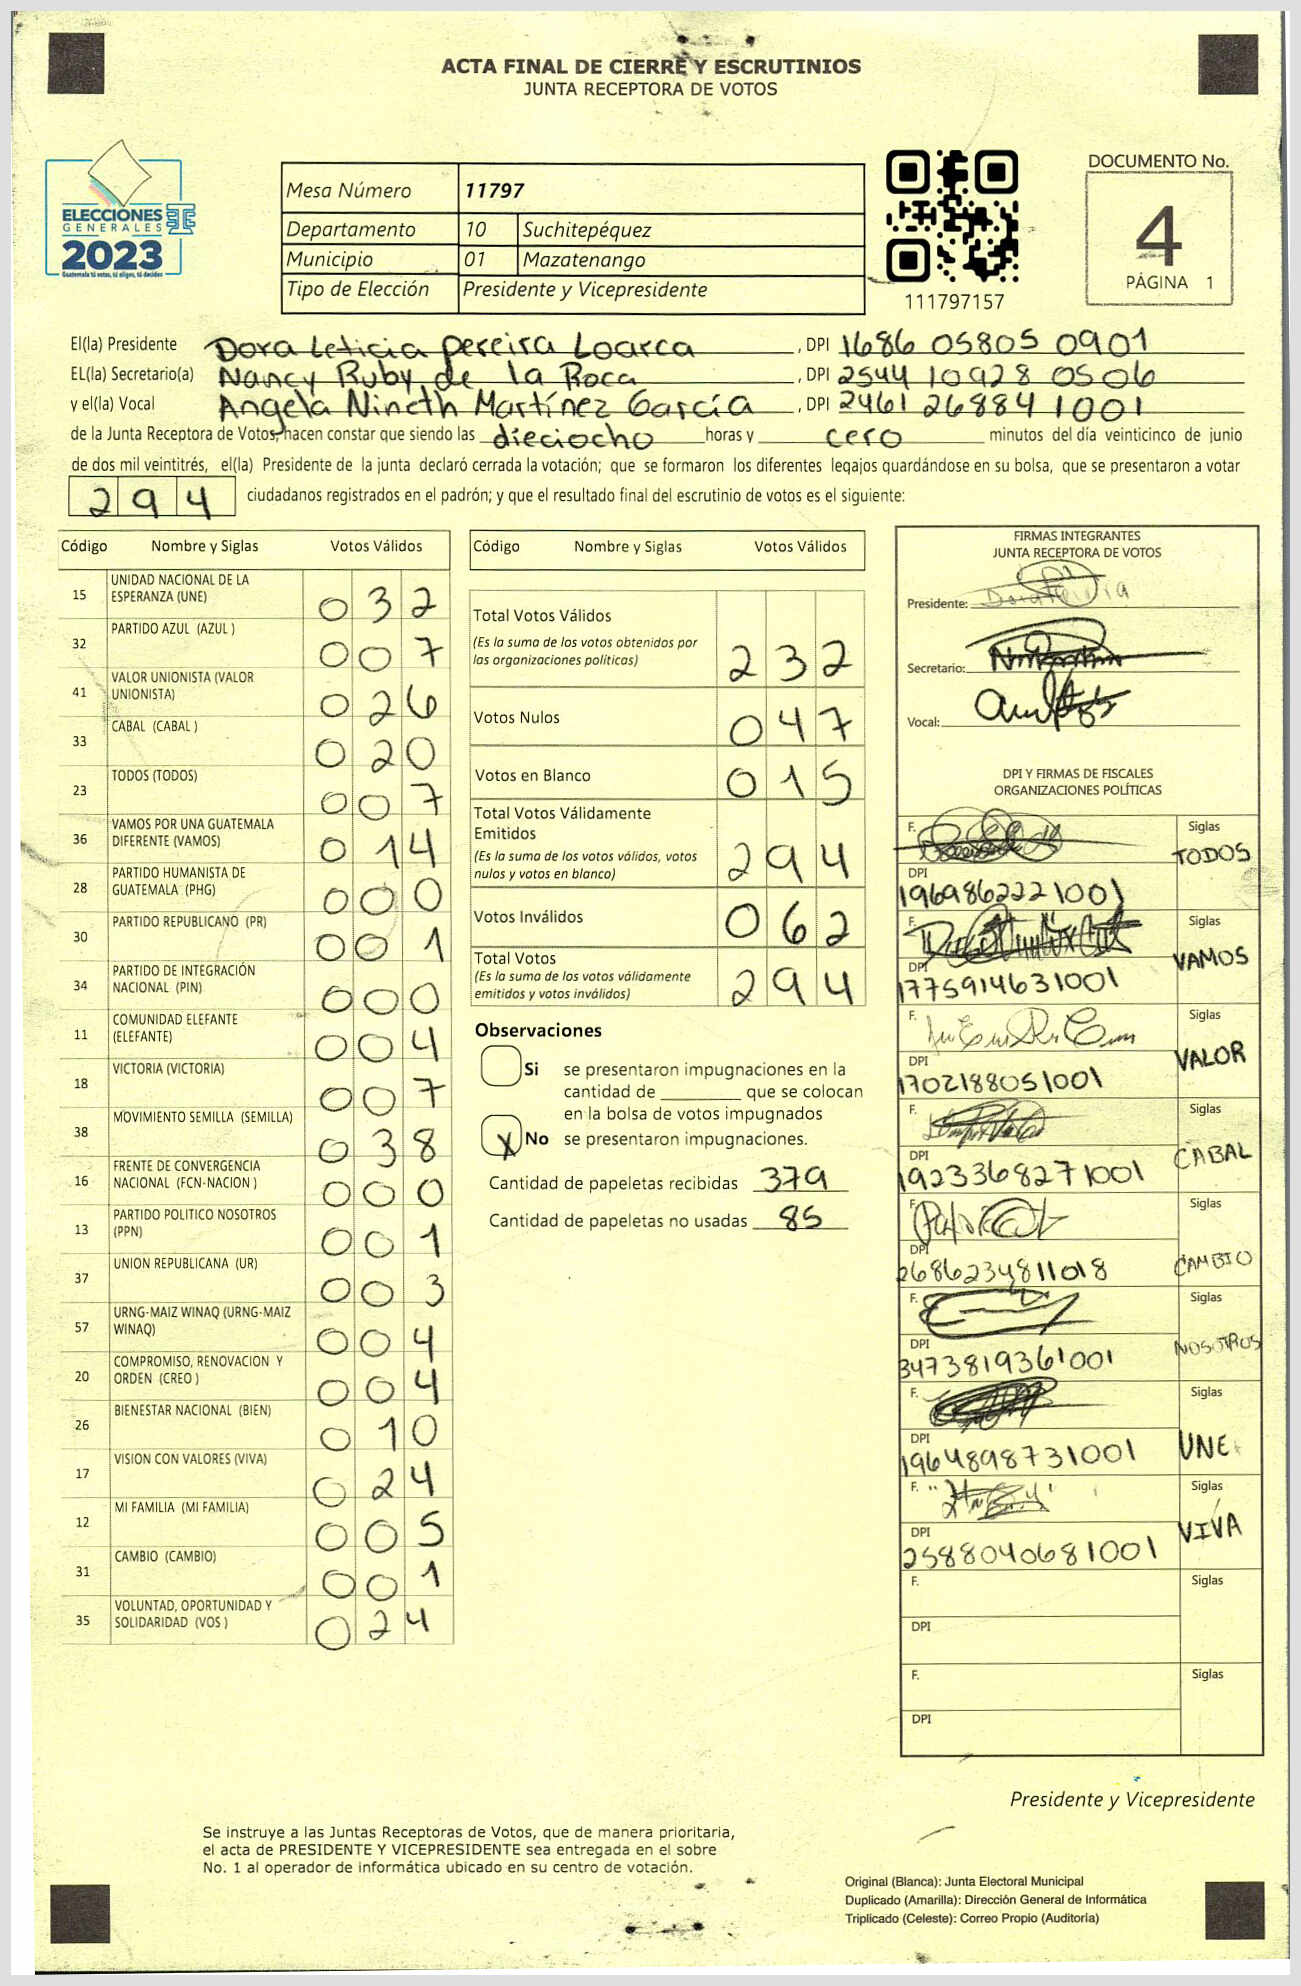 ACTA FINAL DE CIERRE Y ESCRUTINIOS
JUNTA RECEPTORA DE VOTOS
ELECCIONES
GENERALES
2023
Guatemala tú votas, tú eliges, tú decides
Mesa Número 11797
Departamento 10 Suchitepéquez
Municipio 01 Mazatenango
Tipo de Elección Presidente y Vicepresidente
111797157
DOCUMENTO No.
4
PÁGINA 1
El(la) Presidente Dora Leticia pereira Loarca , DPI 1686 05805 0901
EL(la) Secretario(a) Nancy Ruby de la Roca , DPI 2544 10928 0506
y el(la) Vocal Angela Nineth Martínez García , DPI 2461 26884 1001
de la Junta Receptora de Votos, hacen constar que siendo las dieciocho horas y cero minutos del día veinticinco de junio
de dos mil veintitrés, el(la) Presidente de la junta declaró cerrada la votación; que se formaron los diferentes legajos guardándose en su bolsa, que se presentaron a votar
294 ciudadanos registrados en el padrón; y que el resultado final del escrutinio de votos es el siguiente:
Código Nombre y Siglas Votos Válidos
15 UNIDAD NACIONAL DE LA ESPERANZA (UNE) 032
32 PARTIDO AZUL (AZUL ) 007
41 VALOR UNIONISTA (VALOR UNIONISTA) 026
33 CABAL (CABAL ) 020
23 TODOS (TODOS) 007
36 VAMOS POR UNA GUATEMALA DIFERENTE (VAMOS) 014
28 PARTIDO HUMANISTA DE GUATEMALA (PHG) 000
30 PARTIDO REPUBLICANO (PR) 001
34 PARTIDO DE INTEGRACIÓN NACIONAL (PIN) 000
11 COMUNIDAD ELEFANTE (ELEFANTE) 004
18 VICTORIA (VICTORIA) 007
38 MOVIMIENTO SEMILLA (SEMILLA) 038
16 FRENTE DE CONVERGENCIA NACIONAL (FCN-NACION ) 000
13 PARTIDO POLITICO NOSOTROS (PPN) 001
37 UNION REPUBLICANA (UR) 003
57 URNG-MAIZ WINAQ (URNG-MAIZ WINAQ) 004
20 COMPROMISO, RENOVACION Y ORDEN (CREO ) 004
26 BIENESTAR NACIONAL (BIEN) 010
17 VISION CON VALORES (VIVA) 024
12 MI FAMILIA (MI FAMILIA) 005
31 CAMBIO (CAMBIO) 001
35 VOLUNTAD, OPORTUNIDAD Y SOLIDARIDAD (VOS ) 024
Código Nombre y Siglas Votos Válidos
Total Votos Válidos
(Es la suma de los votos obtenidos por
las organizaciones políticas) 232
Votos Nulos 047
Votos en Blanco 015
Total Votos Válidamente
Emitidos
(Es la suma de los votos válidos, votos
nulos y votos en blanco) 294
Votos Inválidos 062
Total Votos
(Es la suma de los votos válidamente
emitidos y votos inválidos) 294
Observaciones
Si se presentaron impugnaciones en la
cantidad de ________ que se colocan
en la bolsa de votos impugnados
X No se presentaron impugnaciones.
Cantidad de papeletas recibidas 379
Cantidad de papeletas no usadas 85
FIRMAS INTEGRANTES
JUNTA RECEPTORA DE VOTOS
Presidente:
Secretario:
Vocal:
DPI Y FIRMAS DE FISCALES
ORGANIZACIONES POLÍTICAS
F. Siglas
TODOS
DPI
1969862221001
F. Siglas
VAMOS
DPI
1775914631001
F. Siglas
VALOR
DPI
1702188051001
F. Siglas
CABAL
DPI
1923368271001
F. Siglas
CAMBIO
DPI
2686234811018
F. Siglas
NOSOTROS
DPI
3473819361001
F. Siglas
UNE
DPI
1964898731001
F. Siglas
VIVA
DPI
2588040681001
F. Siglas
DPI
F. Siglas
DPI
Presidente y Vicepresidente
Se instruye a las Juntas Receptoras de Votos, que de manera prioritaria,
el acta de PRESIDENTE Y VICEPRESIDENTE sea entregada en el sobre
No. 1 al operador de informática ubicado en su centro de votación.
Original (Blanca): Junta Electoral Municipal
Duplicado (Amarilla): Dirección General de Informática
Triplicado (Celeste): Correo Propio (Auditoría)